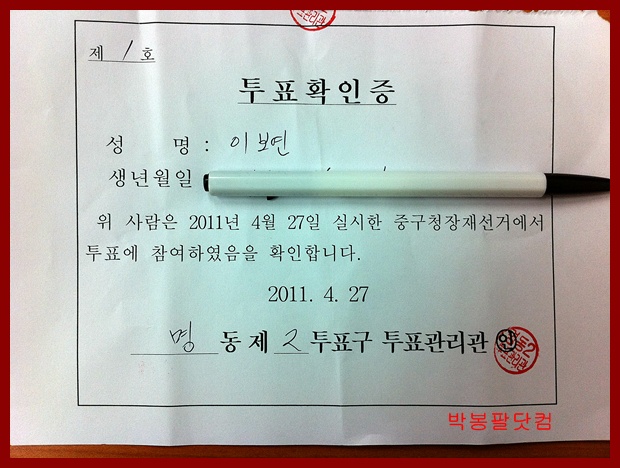 제 1 호
투표확인증
성 명 : 이보연
생년월일
위 사람은 2011년 4월 27일 실시한 중구청장재선거에서
투표에 참여하였음을 확인합니다.
2011. 4. 27
명 동 제 2 투표구 투표관리관 인
박봉팔닷컴